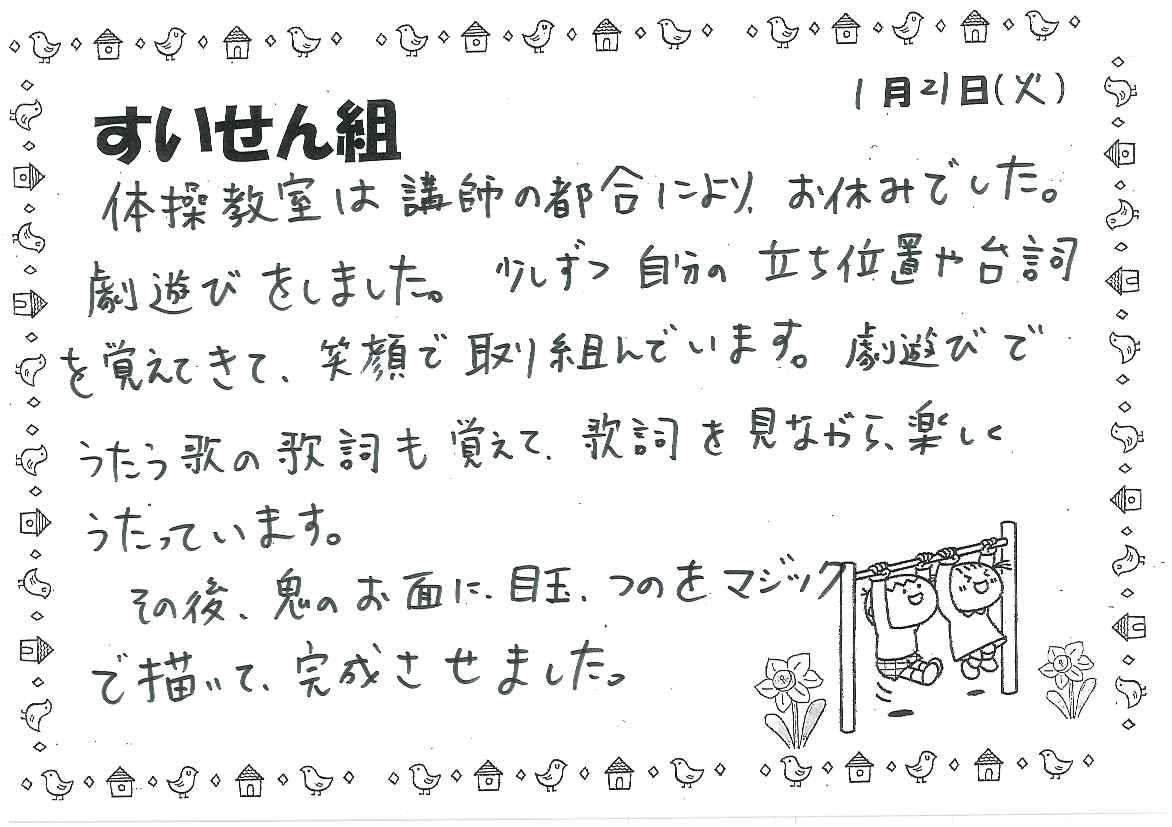 1月21日(火)
すいせん組
体操教室は講師の都合により、お休みでした。
劇遊びをしました。少しずつ自分の立ち位置や台詞
を覚えてきて、笑顔で取り組んでいます。劇遊びで
うたう歌の歌詞も覚えて、歌詞を見ながら、楽しく
うたっています。
その後、鬼のお面に、目玉、つのをマジック
で描いて、完成させました。